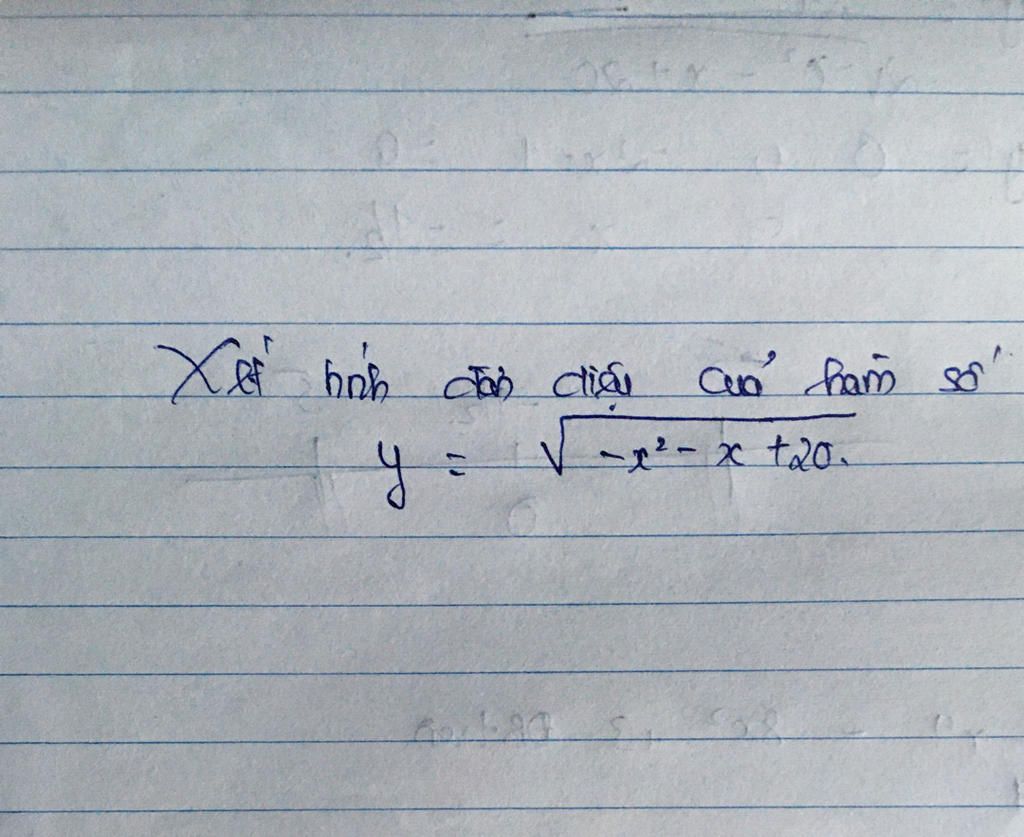 Xét tính đơn điệu của hàm số
y = √-x² - x + 20.